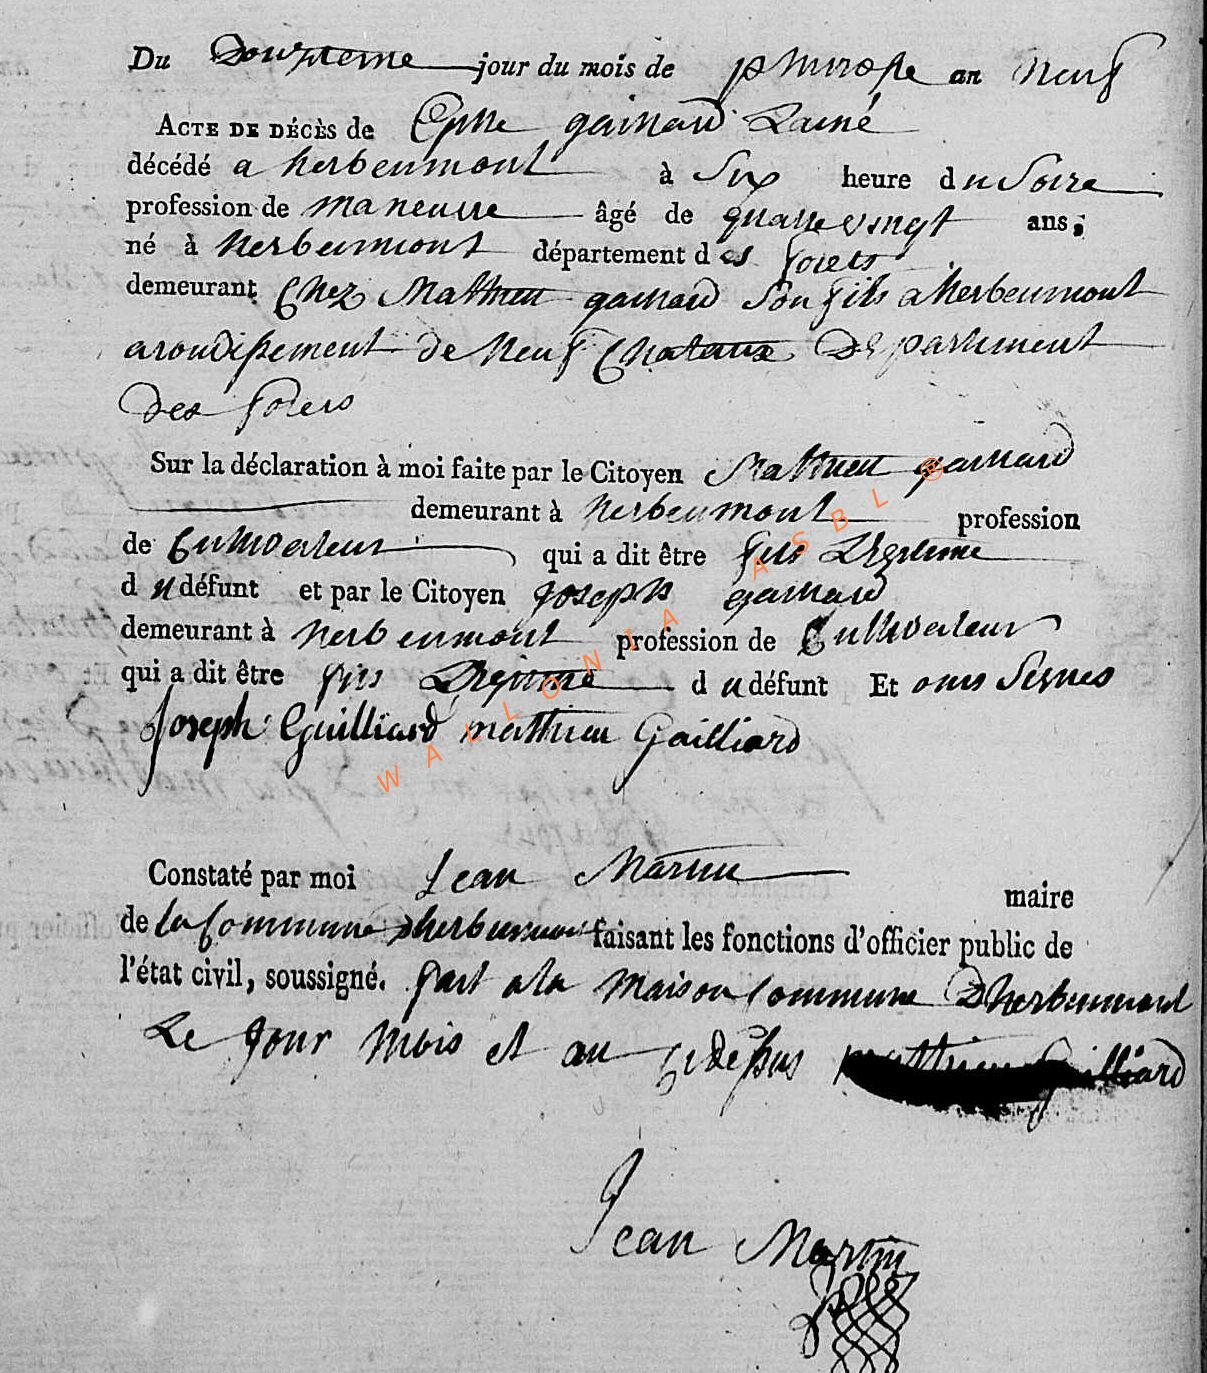 Du Douzieme jour du mois de pluviose an neuf
ACTE DE DÉCÈS de gaillard Lainé
décédé a herbeumont à Six heure du Soire
profession de maneuvre âgé de quatre vingt ans;
né à herbeumont département des forets
demeurant Chez Mathieu gaillard Son fils a herbeumont
arondissement de neuf Chataux Departement
des forets
Sur la déclaration à moi faite par le Citoyen Mathieu gaillard
demeurant à herbeumont profession
de Cultivateur qui a dit être fils Legitime
du défunt et par le Citoyen joseph gaillard
demeurant à herbeumont profession de Cultivateur
qui a dit être fils Legitime du défunt Et onts Signes
Joseph Guilliard mathieu Gailliard
Constaté par moi Jean Martin maire
de la Commune dherbeumont faisant les fonctions d'officier public de
l'état civil, soussigné. fait a la maison Commune Dherbeumont
Le Jour mois et an Cy dessus mathieu Gailliard
Jean Martin
WALLONIA ASBL ®